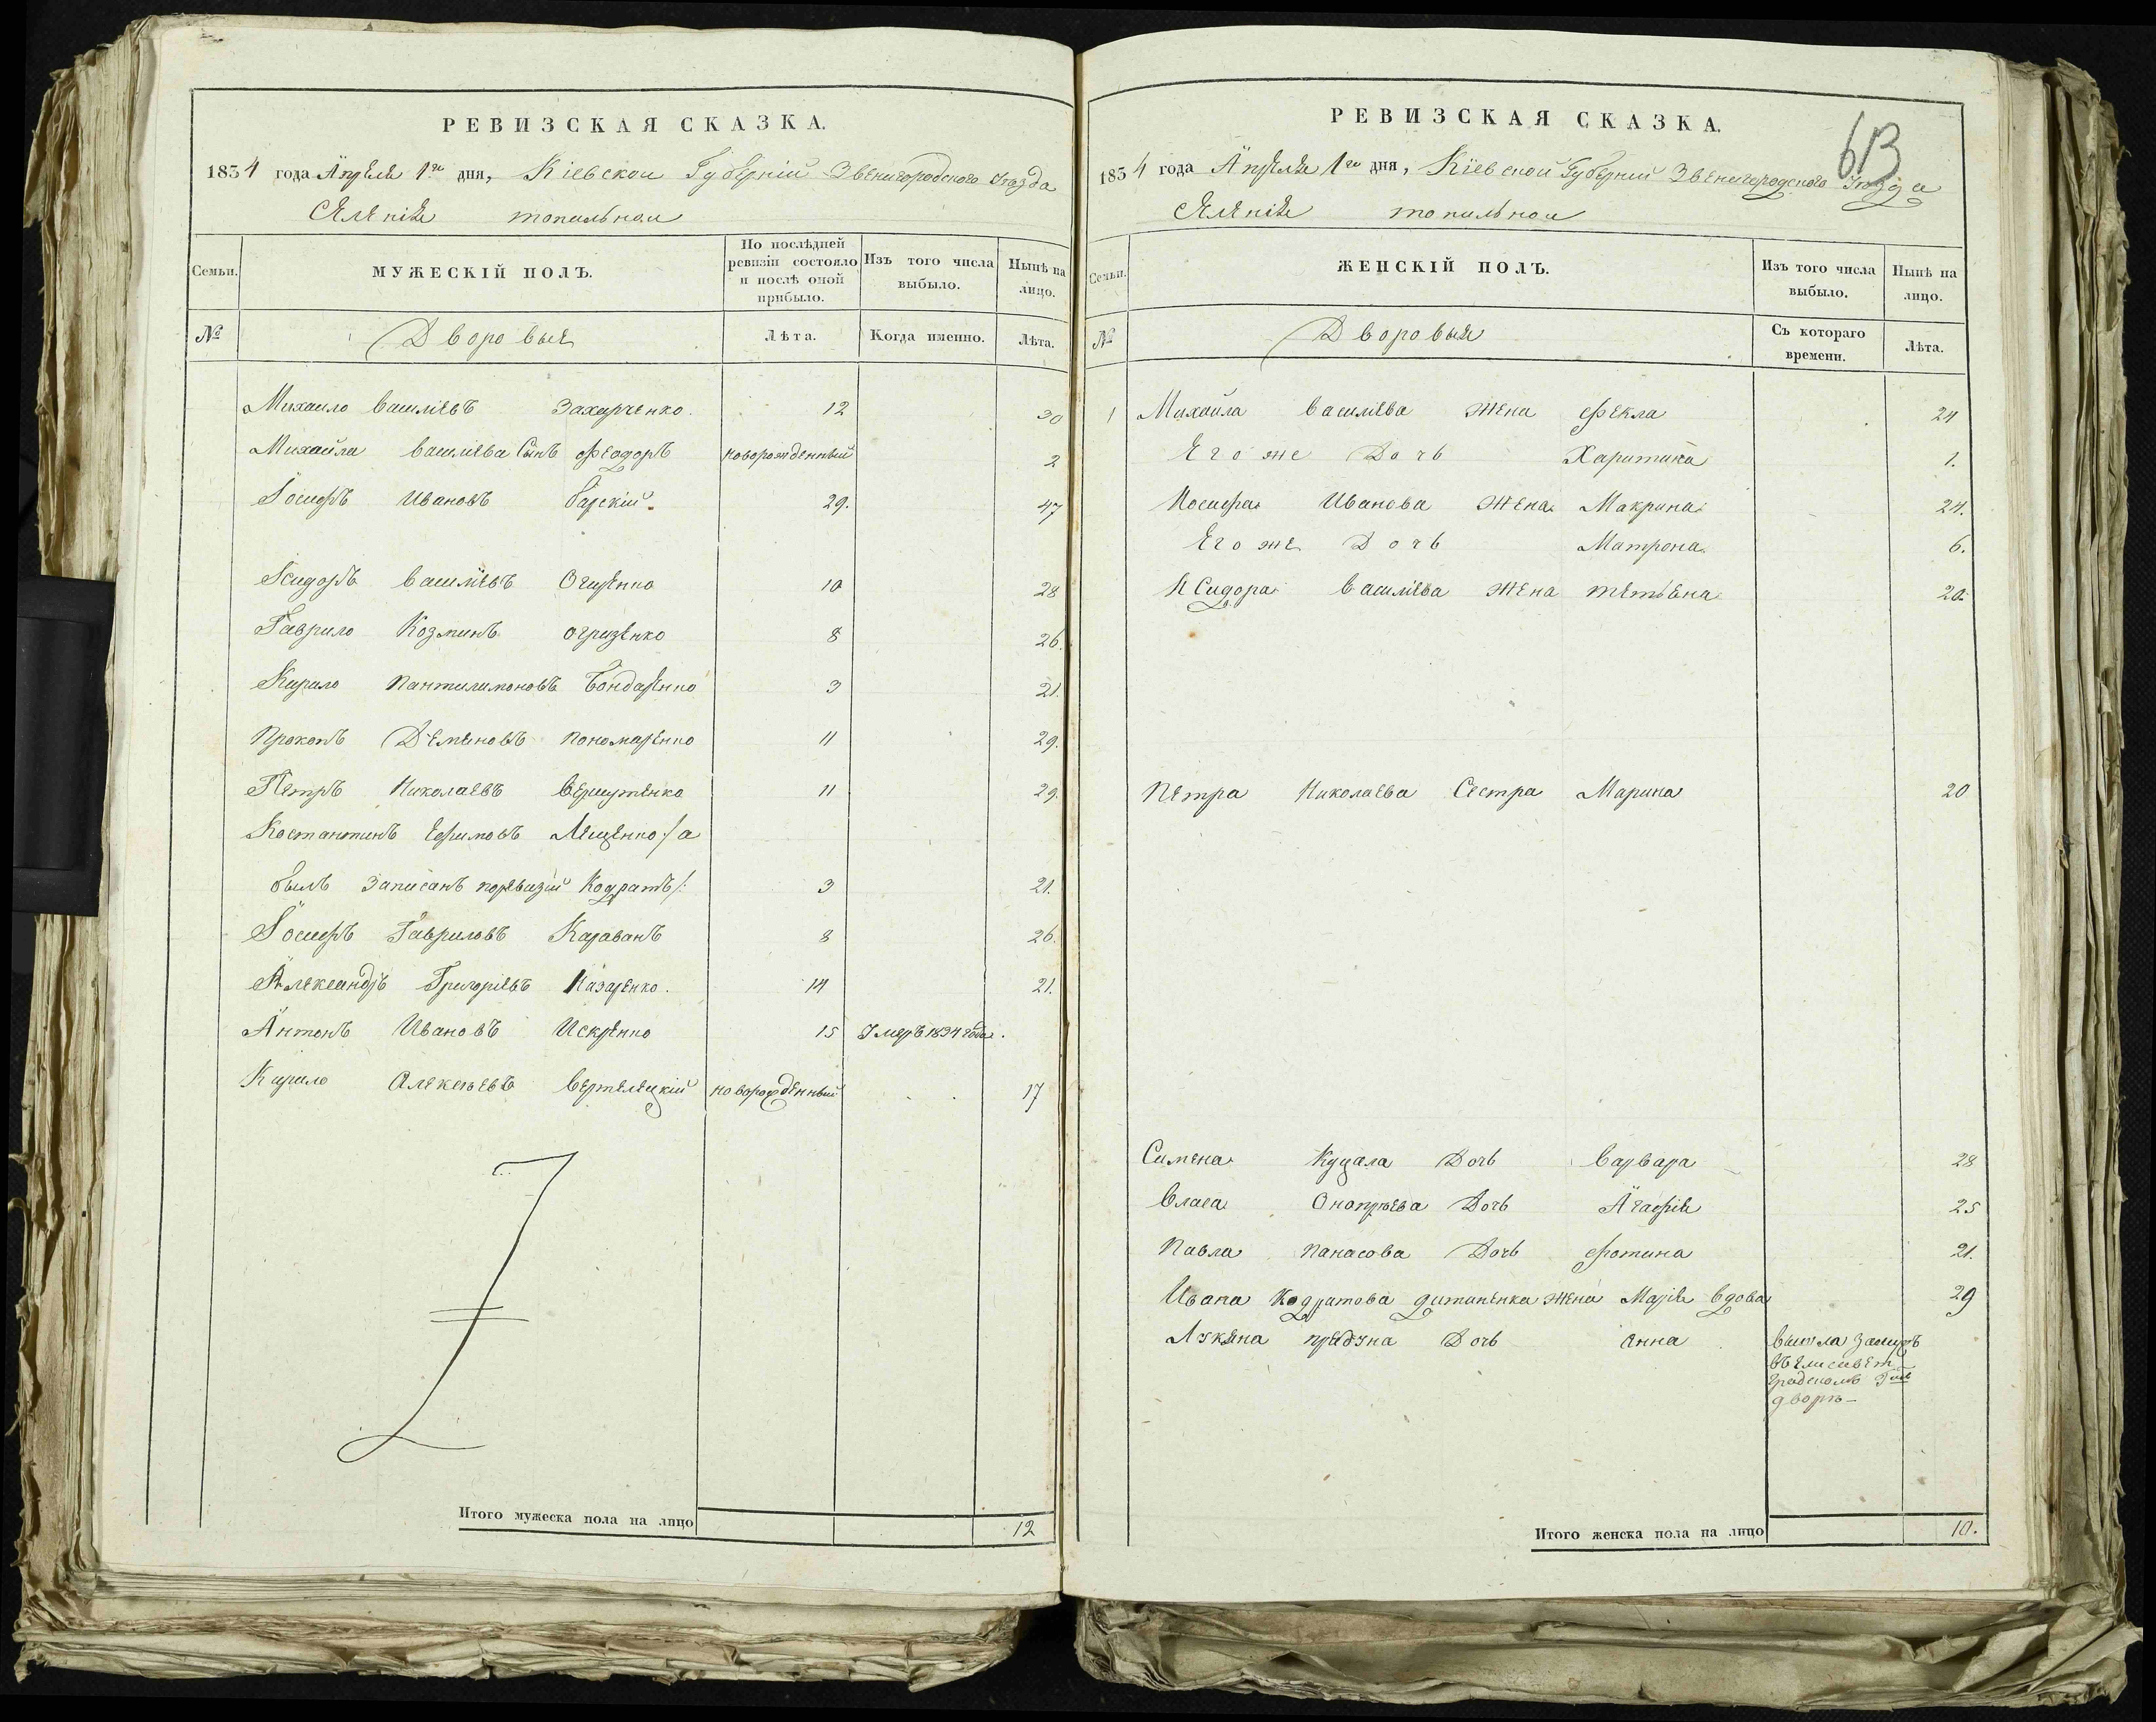 РЕВИЗСКАЯ СКАЗКА.
1834 года Апреля 1го дня, Кіевской Губерніи Звенигородского Уезда
Селеніе топильнои
Семьи. МУЖЕСКІЙ ПОЛЪ. По послѣдней ревизіи состояло и послѣ оной прибыло. Изъ того числа выбыло. Нынѣ на лицо.
№ Дворовые Лѣта. Когда именно. Лѣта.
Михаило Василіевъ Захарченко. 12 30
Михайла Василіева Сынъ Феодоръ новорожденный 2
Іосифъ Ивановъ барскій. 29. 47
Ісидоръ Василіевъ 10 28
Гаврило Козминъ огризенко 8 26.
Кирило Пантилимоновъ Бондаренко 3 21.
Прокопъ Деменовъ пономаренко 11 29.
Петръ Николаевъ 11 29.
Костантинъ Ефимовъ Лещенко /а
былъ записанъ поревизіи Кодратъ/: 3 21.
Іосифъ Гавриловъ Караванъ 8 26.
Александъ Григоріевъ Назаренко. 14 21.
Антонъ Ивановъ Искренко 15 Умеръ 1834 года.
Кирило Алексѣевъ Вертелецкій новорожденный 17
Итого мужеска пола на лицо 12
РЕВИЗСКАЯ СКАЗКА.
613
1834 года Апреля 1го дня, Кіевской Губерніи Звенигородского Уезда
Селеніе топильнои
Семьи. ЖЕНСКІЙ ПОЛЪ. Изъ того числа выбыло. Нынѣ на лицо.
№ Дворовые Съ котораго времени. Лѣта.
1 Михайла Василіева жена Фекла 24
Его же Дочь Харитина 1.
Иосифа Иванова жена Макрина 24.
Его же Дочь Матрона 6.
Исидора Василіева жена тетьена 20.
Петра Николаева Сестра Марина 20
Симена Куцала Дочь Варвара 28
Власа Онопрѣева Дочь Агафія 25
Павла Панасова Дочь Фотина 21.
Ивана Кодратова дитиненка жена Марія вдова 29
Лукяна Дочь Анна вышла замуж
въ Елисавет-
градскомъ Гим
дворѣ-
Итого женска пола на лицо 10.